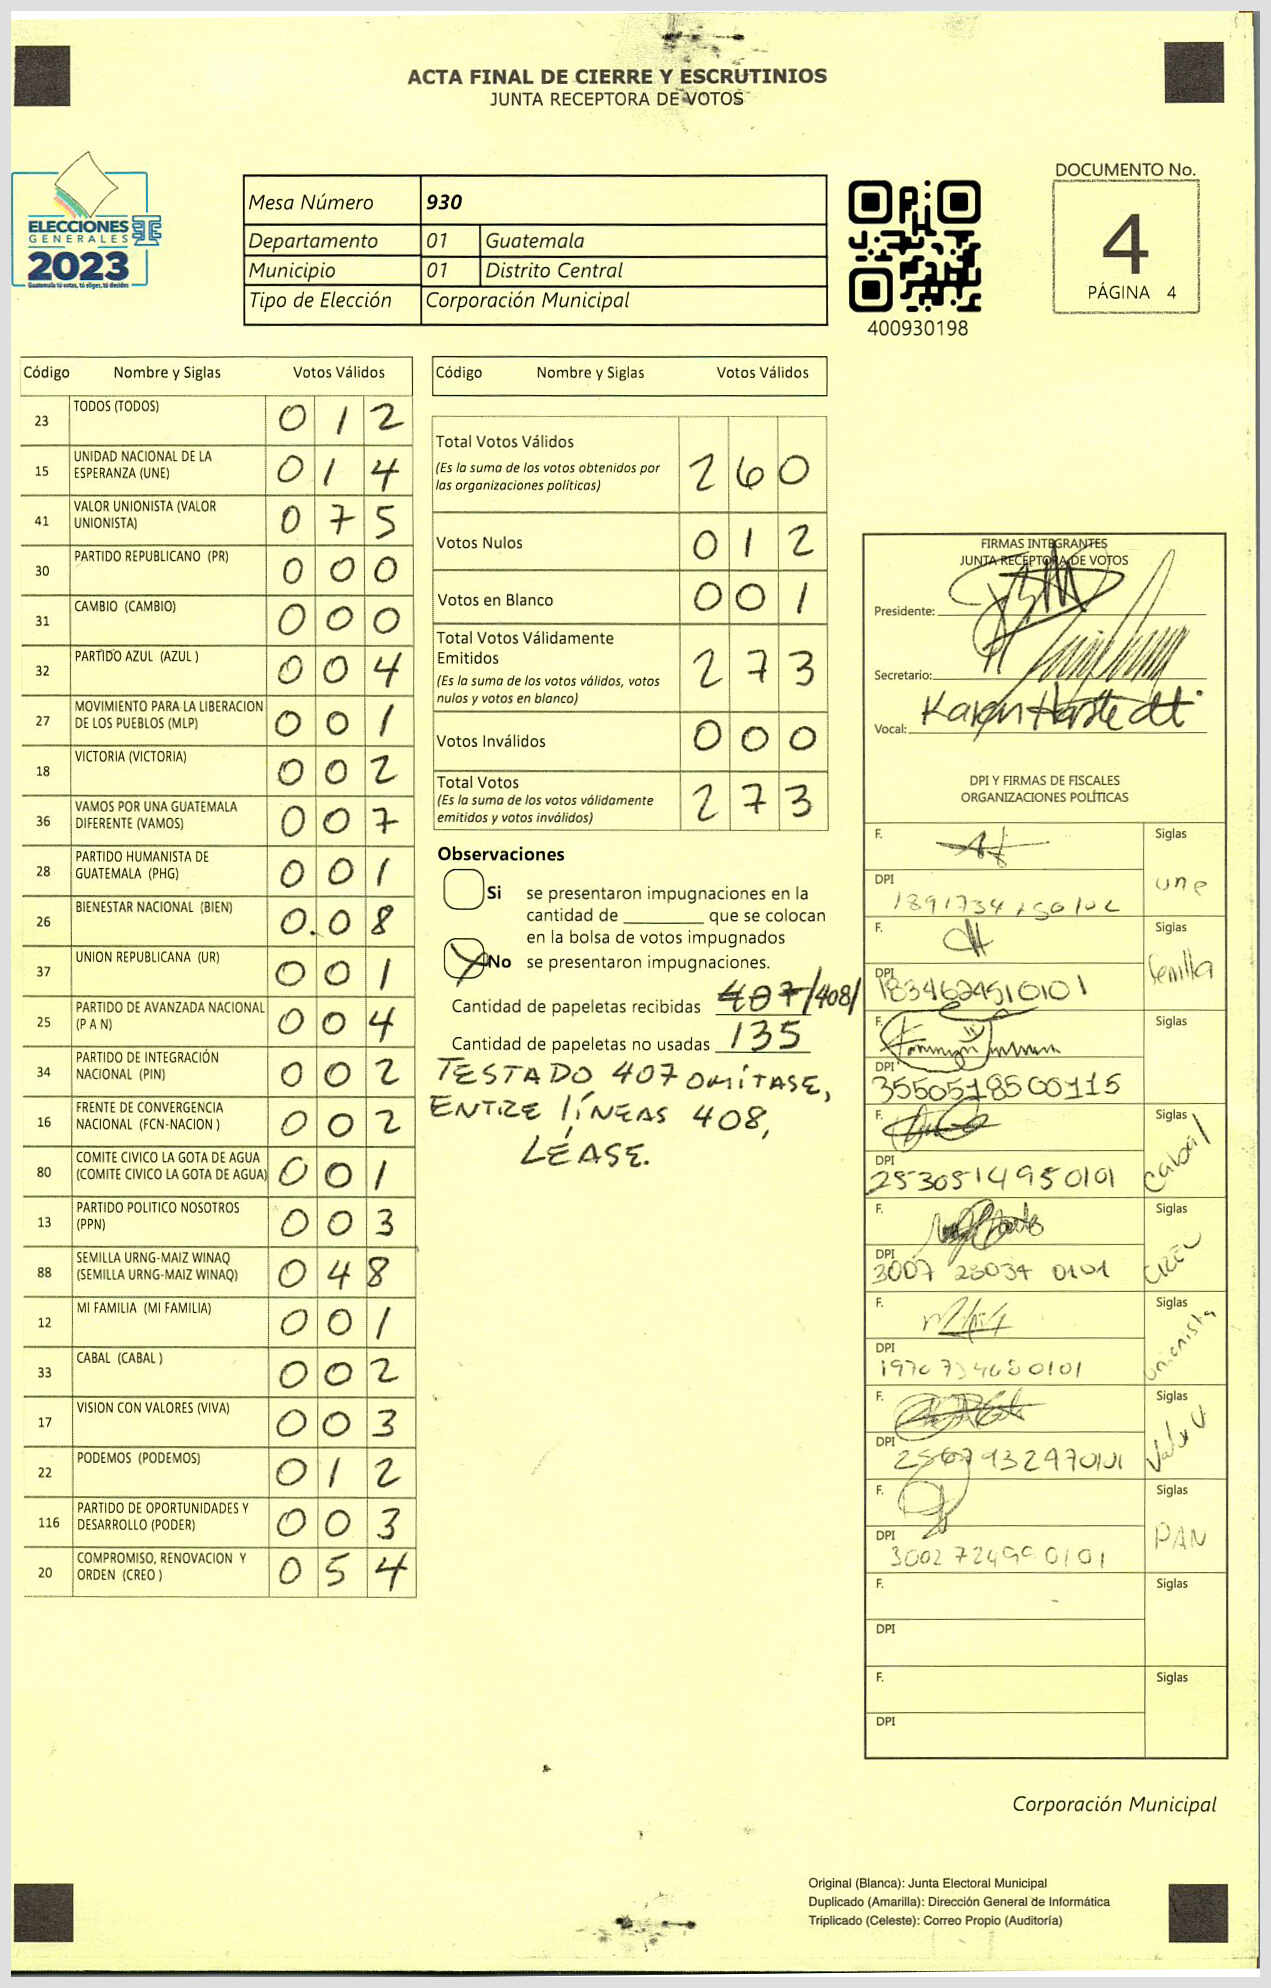 ACTA FINAL DE CIERRE Y ESCRUTINIOS
JUNTA RECEPTORA DE VOTOS
ELECCIONES
GENERALES
2023
Guatemala tú votas, tú eliges, tú decides
Mesa Número 930
Departamento 01 Guatemala
Municipio 01 Distrito Central
Tipo de Elección Corporación Municipal
400930198
DOCUMENTO No.
4
PÁGINA 4
Código Nombre y Siglas Votos Válidos
23 TODOS (TODOS) 0 1 2
15 UNIDAD NACIONAL DE LA ESPERANZA (UNE) 0 1 4
41 VALOR UNIONISTA (VALOR UNIONISTA) 0 7 5
30 PARTIDO REPUBLICANO (PR) 0 0 0
31 CAMBIO (CAMBIO) 0 0 0
32 PARTIDO AZUL (AZUL ) 0 0 4
27 MOVIMIENTO PARA LA LIBERACION DE LOS PUEBLOS (MLP) 0 0 1
18 VICTORIA (VICTORIA) 0 0 2
36 VAMOS POR UNA GUATEMALA DIFERENTE (VAMOS) 0 0 7
28 PARTIDO HUMANISTA DE GUATEMALA (PHG) 0 0 1
26 BIENESTAR NACIONAL (BIEN) 0 0 8
37 UNION REPUBLICANA (UR) 0 0 1
25 PARTIDO DE AVANZADA NACIONAL (P A N) 0 0 4
34 PARTIDO DE INTEGRACIÓN NACIONAL (PIN) 0 0 2
16 FRENTE DE CONVERGENCIA NACIONAL (FCN-NACION ) 0 0 2
80 COMITE CIVICO LA GOTA DE AGUA (COMITE CIVICO LA GOTA DE AGUA) 0 0 1
13 PARTIDO POLITICO NOSOTROS (PPN) 0 0 3
88 SEMILLA URNG-MAIZ WINAQ (SEMILLA URNG-MAIZ WINAQ) 0 4 8
12 MI FAMILIA (MI FAMILIA) 0 0 1
33 CABAL (CABAL ) 0 0 2
17 VISION CON VALORES (VIVA) 0 0 3
22 PODEMOS (PODEMOS) 0 1 2
116 PARTIDO DE OPORTUNIDADES Y DESARROLLO (PODER) 0 0 3
20 COMPROMISO, RENOVACION Y ORDEN (CREO ) 0 5 4
Código Nombre y Siglas Votos Válidos
Total Votos Válidos 2 6 0
(Es la suma de los votos obtenidos por
las organizaciones políticas)
Votos Nulos 0 1 2
Votos en Blanco 0 0 1
Total Votos Válidamente
Emitidos 2 7 3
(Es la suma de los votos válidos, votos
nulos y votos en blanco)
Votos Inválidos 0 0 0
Total Votos 2 7 3
(Es la suma de los votos válidamente
emitidos y votos inválidos)
Observaciones
Si se presentaron impugnaciones en la
cantidad de ________ que se colocan
en la bolsa de votos impugnados
No se presentaron impugnaciones.
Cantidad de papeletas recibidas 407/408/
Cantidad de papeletas no usadas 135
TESTADO 407 OMÍTASE,
ENTRE LÍNEAS 408,
LÉASE.
FIRMAS INTEGRANTES
JUNTA RECEPTORA DE VOTOS
Presidente:
Secretario:
Vocal: Karen
DPI Y FIRMAS DE FISCALES
ORGANIZACIONES POLÍTICAS
F. Siglas
DPI une
F. Siglas
DPI 1834624510101 Semilla
F. Siglas
DPI 3550518500115
F. Siglas
DPI 2530514950101 Cabal
F. Siglas
DPI 3007 23034 0101 CREO
F. Siglas
DPI unionista
F. Siglas
DPI Valor U
F. Siglas
DPI PAN
F. Siglas
DPI
F. Siglas
DPI
Corporación Municipal
Original (Blanca): Junta Electoral Municipal
Duplicado (Amarilla): Dirección General de Informática
Triplicado (Celeste): Correo Propio (Auditoría)